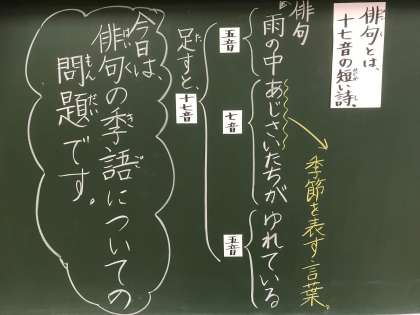 俳句とは、
十七音の短い詩。
俳句
雨の中あじさいたちがゆれている
季節を表す言葉。
五音
七音
五音
足すと、十七音
今日は、
俳句の季語についての
問題です。